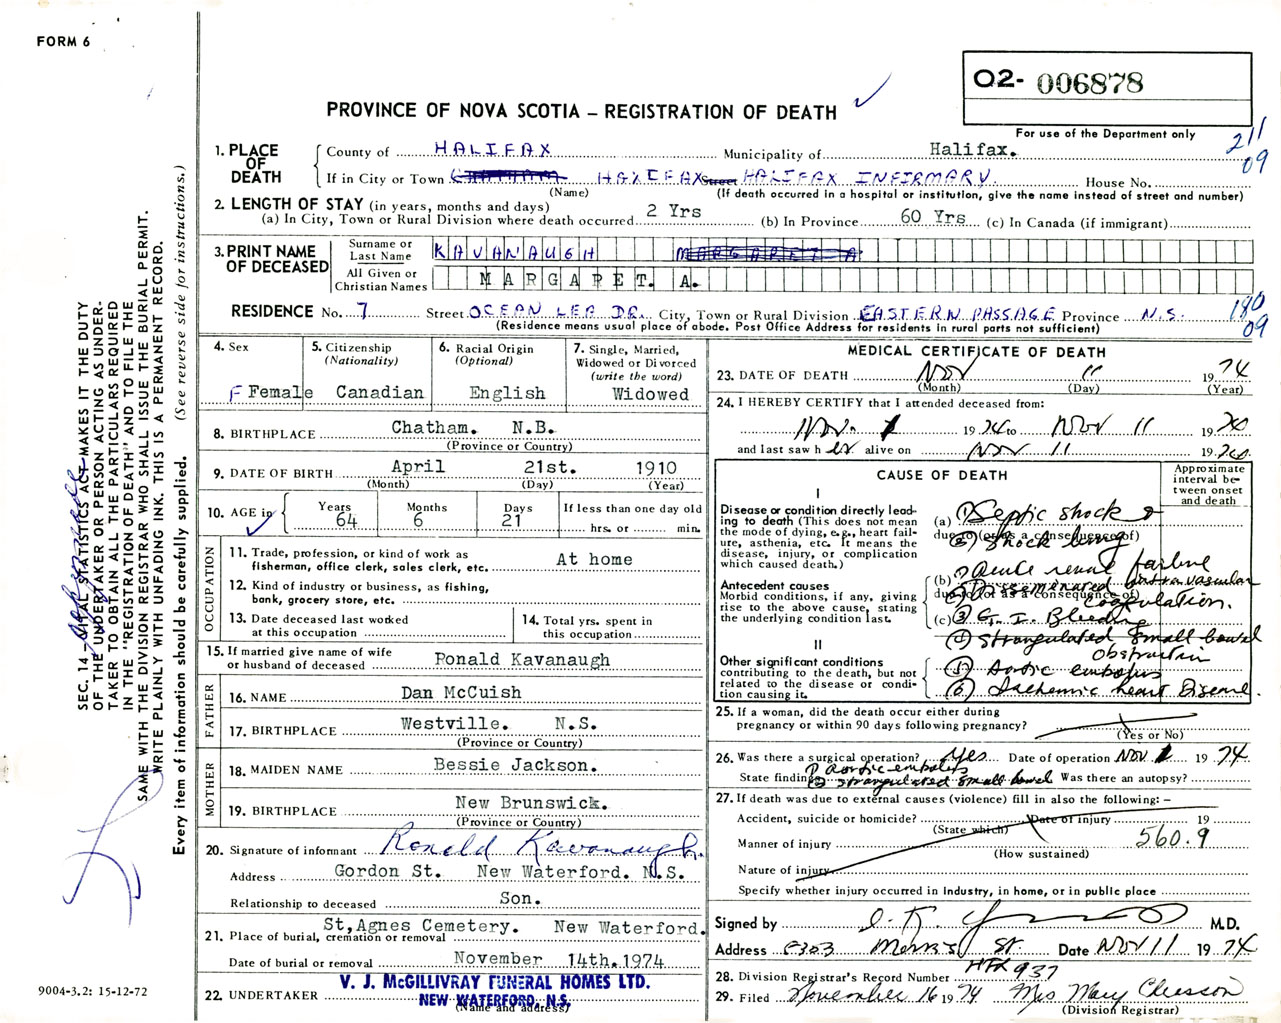 FORM 6
O2- 006878
PROVINCE OF NOVA SCOTIA – REGISTRATION OF DEATH
For use of the Department only
211
09
1. PLACE OF DEATH
County of HALIFAX Municipality of Halifax.
If in City or Town HALIFAX Street HALIFAX INFIRMARY House No.
(Name) (If death occurred in a hospital or institution, give the name instead of street and number)
2. LENGTH OF STAY (in years, months and days)
(a) In City, Town or Rural Division where death occurred 2 Yrs (b) In Province 60 Yrs (c) In Canada (if immigrant)
3. PRINT NAME OF DECEASED
Surname or Last Name KAVANAUGH MARGARET A
All Given or Christian Names MARGARET. A.
RESIDENCE No. 7 Street OCEAN LEA DR. City, Town or Rural Division EASTERN PASSAGE Province N.S.
180
09
(Residence means usual place of abode. Post Office Address for residents in rural parts not sufficient)
4. Sex
F Female
5. Citizenship
(Nationality)
Canadian
6. Racial Origin
(Optional)
English
7. Single, Married,
Widowed or Divorced
(write the word)
Widowed
8. BIRTHPLACE Chatham. N.B.
(Province or Country)
9. DATE OF BIRTH April 21st. 1910
(Month) (Day) (Year)
10. AGE in
Years Months Days If less than one day old
64 6 21 hrs. or min.
OCCUPATION
11. Trade, profession, or kind of work as
fisherman, office clerk, sales clerk, etc. At home
12. Kind of industry or business, as fishing,
bank, grocery store, etc.
13. Date deceased last worked
at this occupation
14. Total yrs. spent in
this occupation
15. If married give name of wife
or husband of deceased Ronald Kavanaugh
FATHER
16. NAME Dan McCuish
17. BIRTHPLACE Westville. N.S.
(Province or Country)
MOTHER
18. MAIDEN NAME Bessie Jackson.
19. BIRTHPLACE New Brunswick.
(Province or Country)
20. Signature of informant Ronald Kavanaugh.
Address Gordon St. New Waterford. N.S.
Relationship to deceased Son.
21. Place of burial, cremation or removal St,Agnes Cemetery. New Waterford.
Date of burial or removal November 14th.1974
22. UNDERTAKER V. J. McGILLIVRAY FUNERAL HOMES LTD.
NEW WATERFORD, N.S.
(Name and address)
MEDICAL CERTIFICATE OF DEATH
23. DATE OF DEATH Nov 11 1974
(Month) (Day) (Year)
24. I HEREBY CERTIFY that I attended deceased from:
Nov. 1 1974 to Nov 11 19
and last saw her alive on Nov 11 19
CAUSE OF DEATH
Approximate interval between onset and death
I
Disease or condition directly leading to death (This does not mean the mode of dying, e.g., heart failure, asthenia, etc. It means the disease, injury, or complication which caused death.)
(a) (1) Septic shock
due to (or as a consequence of)
(2) Shock lung
Antecedent causes
Morbid conditions, if any, giving rise to the above cause, stating the underlying condition last.
(b) Acute renal failure
due to (or as a consequence of)
Disseminated intravascular coagulation.
(c) (3) G. I. Bleeding
(4) Strangulated small bowel obstruction
II
Other significant conditions contributing to the death, but not related to the disease or condition causing it.
(5) Aortic embolus
(6) Ischemic heart Disease.
25. If a woman, did the death occur either during
pregnancy or within 90 days following pregnancy?
(Yes or No)
26. Was there a surgical operation? Yes Date of operation Nov 1 1974
State findings (1) aortic embolus
(2) strangulated small bowel Was there an autopsy?
27. If death was due to external causes (violence) fill in also the following: –
Accident, suicide or homicide? Date of injury 19
(State which)
Manner of injury 560.9
(How sustained)
Nature of injury
Specify whether injury occurred in industry, in home, or in public place
Signed by M.D.
Address 5303 Morris St. Date Nov 11 1974
28. Division Registrar's Record Number HFX 937
29. Filed November 16 1974 Mrs Mary
(Division Registrar)
SEC. 14 – VITAL STATISTICS ACT MAKES IT THE DUTY
OF THE UNDERTAKER OR PERSON ACTING AS UNDERTAKER TO OBTAIN ALL THE PARTICULARS REQUIRED
IN THE "REGISTRATION OF DEATH" AND TO FILE THE
SAME WITH THE DIVISION REGISTRAR WHO SHALL ISSUE THE BURIAL PERMIT.
WRITE PLAINLY WITH UNFADING INK. THIS IS A PERMANENT RECORD.
Every item of information should be carefully supplied. (See reverse side for instructions.)
9004-3.2: 15-12-72